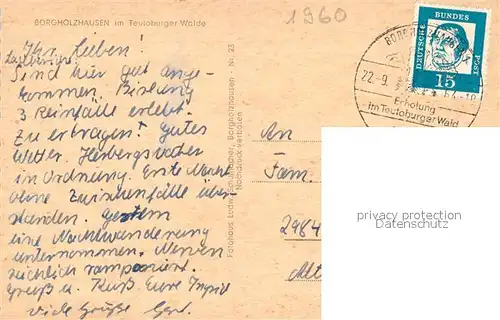 BORGHOLZHAUSEN im Teutoburger Walde
1960
Ihr Lieben!
Sind hier gut ange-
kommen. Bislang
3 Reinfälle erlebt.
Zu ertragen! Gutes
Wetter. Herbergsvater
in Ordnung. Erste Nacht
ohne Zwischenfälle über-
standen. Gestern
eine Nachtwanderung
unternommen. Nerven
reichlich ramponiert.
Gruß u. Kuß Eure Ingrid
viele Grüße Gerd.
Fotohaus Ludw. Schumacher, Borgholzhausen - Nr. 23
Nachdruck verboten
DEUTSCHE BUNDES POST
15
22.-9.
Erholung
im Teutoburger Wald
An
Fam.
2984
protection privacy
Datenschutz